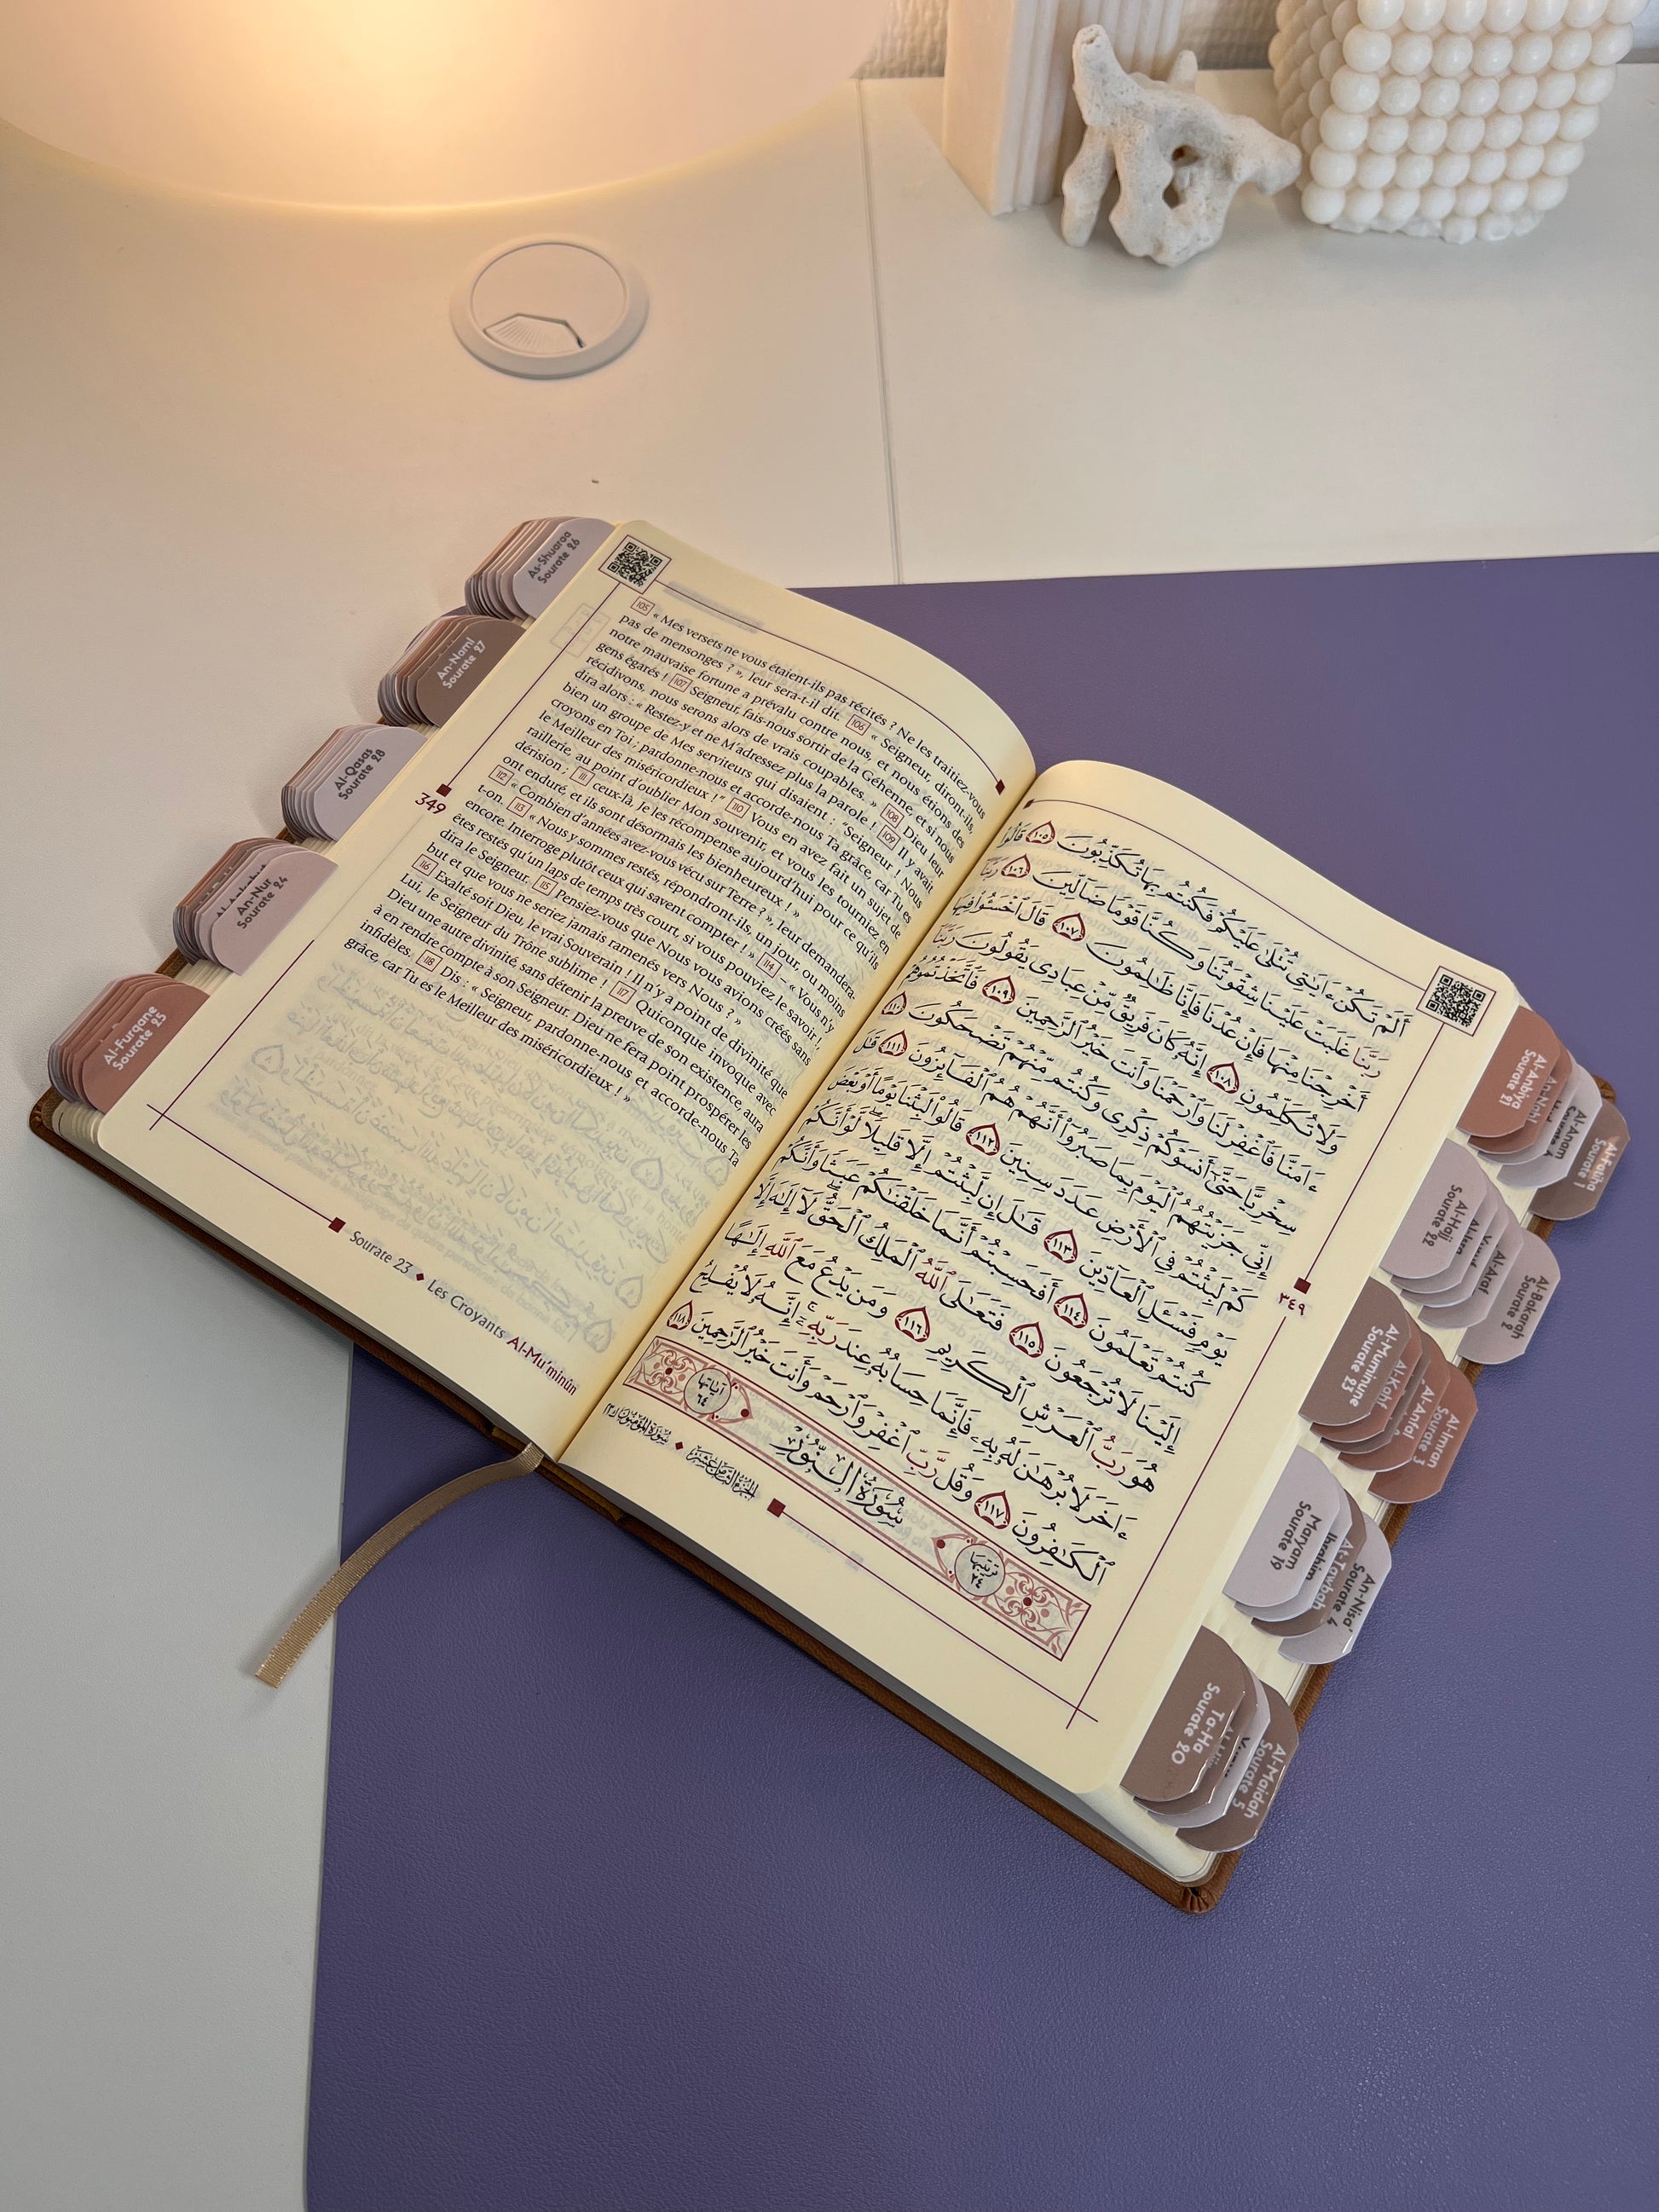 105 « Mes versets ne vous étaient-ils pas récités ? Ne les traitiez-vous
pas de mensonges ? », leur sera-t-il dit. 106 « Seigneur, diront-ils,
notre mauvaise fortune a prévalu contre nous, et nous étions des
gens égarés ! 107 Seigneur, fais-nous sortir de la Géhenne, et si nous
récidivons, nous serons alors de vrais coupables. » 108 Dieu leur
dira alors : « Restez-y et ne M'adressez plus la parole ! 109 Il y avait
bien un groupe de Mes serviteurs qui disaient : "Seigneur ! Nous
croyons en Toi ; pardonne-nous et accorde-nous Ta grâce, car Tu es
le Meilleur des miséricordieux !" 110 Vous en avez fait un sujet de
raillerie, au point d'oublier Mon souvenir, et vous les tourniez en
dérision ; 111 ceux-là, Je les récompense aujourd'hui pour ce qu'ils
ont enduré, et ils sont désormais les bienheureux ! »
112 « Combien d'années avez-vous vécu sur Terre ? », leur demandera-
t-on. 113 « Nous y sommes restés, répondront-ils, un jour, ou moins
encore. Interroge plutôt ceux qui savent compter ! » 114 « Vous n'y
êtes restés qu'un laps de temps très court, si vous pouviez le savoir !,
dira le Seigneur. 115 Pensiez-vous que Nous vous avions créés sans
but et que vous ne seriez jamais ramenés vers Nous ? »
116 Exalté soit Dieu, le vrai Souverain ! Il n'y a point de divinité que
Lui, le Seigneur du Trône sublime ! 117 Quiconque invoque avec
Dieu une autre divinité sans détenir la preuve de son existence, aura
à en rendre compte à son Seigneur. Dieu ne fera point prospérer les
infidèles. 118 Dis : « Seigneur, pardonne-nous et accorde-nous Ta
grâce, car Tu es le Meilleur des miséricordieux ! »
349
Sourate 23 ◆ Les Croyants Al-Mu'minûn
أَلَمْ تَكُنْ ءَايَٰتِي تُتْلَىٰ عَلَيْكُمْ فَكُنتُم بِهَا تُكَذِّبُونَ ١٠٥ قَالُوا۟
رَبَّنَا غَلَبَتْ عَلَيْنَا شِقْوَتُنَا وَكُنَّا قَوْمًا ضَآلِّينَ ١٠٦ رَبَّنَآ
أَخْرِجْنَا مِنْهَا فَإِنْ عُدْنَا فَإِنَّا ظَٰلِمُونَ ١٠٧ قَالَ ٱخْسَـُٔوا۟ فِيهَا
وَلَا تُكَلِّمُونِ ١٠٨ إِنَّهُۥ كَانَ فَرِيقٌ مِّنْ عِبَادِى يَقُولُونَ رَبَّنَآ
ءَامَنَّا فَٱغْفِرْ لَنَا وَٱرْحَمْنَا وَأَنتَ خَيْرُ ٱلرَّٰحِمِينَ ١٠٩ فَٱتَّخَذْتُمُوهُمْ
سِخْرِيًّا حَتَّىٰٓ أَنسَوْكُمْ ذِكْرِى وَكُنتُم مِّنْهُمْ تَضْحَكُونَ ١١٠
إِنِّى جَزَيْتُهُمُ ٱلْيَوْمَ بِمَا صَبَرُوٓا۟ أَنَّهُمْ هُمُ ٱلْفَآئِزُونَ ١١١ قَٰلَ
كَمْ لَبِثْتُمْ فِى ٱلْأَرْضِ عَدَدَ سِنِينَ ١١٢ قَالُوا۟ لَبِثْنَا يَوْمًا أَوْ بَعْضَ
يَوْمٍ فَسْـَٔلِ ٱلْعَآدِّينَ ١١٣ قَٰلَ إِن لَّبِثْتُمْ إِلَّا قَلِيلًا لَّوْ أَنَّكُمْ
كُنتُمْ تَعْلَمُونَ ١١٤ أَفَحَسِبْتُمْ أَنَّمَا خَلَقْنَٰكُمْ عَبَثًا وَأَنَّكُمْ
إِلَيْنَا لَا تُرْجَعُونَ ١١٥ فَتَعَٰلَى ٱللَّهُ ٱلْمَلِكُ ٱلْحَقُّ لَآ إِلَٰهَ إِلَّا
هُوَ رَبُّ ٱلْعَرْشِ ٱلْكَرِيمِ ١١٦ وَمَن يَدْعُ مَعَ ٱللَّهِ إِلَٰهًا
ءَاخَرَ لَا بُرْهَٰنَ لَهُۥ بِهِۦ فَإِنَّمَا حِسَابُهُۥ عِندَ رَبِّهِۦٓ إِنَّهُۥ لَا يُفْلِحُ
ٱلْكَٰفِرُونَ ١١٧ وَقُل رَّبِّ ٱغْفِرْ وَٱرْحَمْ وَأَنتَ خَيْرُ ٱلرَّٰحِمِينَ ١١٨
ترتيبها ٢٤ سُورَةُ ٱلنُّورِ آياتها ٦٤
٣٤٩
الجزء الثامن عشر ◆ سورة المؤمنون
As-Shuaraa
Sourate 26
An-Naml
Sourate 27
Al-Qasas
Sourate 28
An-Nur
Sourate 24
Al-Furqane
Sourate 25
Al-Anbiya
Sourate 21
Al-Anam
Al-Fatiha
Sourate 1
Al-Hajj
Sourate 22
Al-Araf
Al-Bakarah
Sourate 2
Al-Muminune
Sourate 23
Al-Kahf
Al-Anfal
Al-Imran
Sourate 3
Maryam
Sourate 19
Ibrahim
At-Tawbah
An-Nisa'
Sourate 4
Ta-Ha
Sourate 20
Al-Maidah
Sourate 5